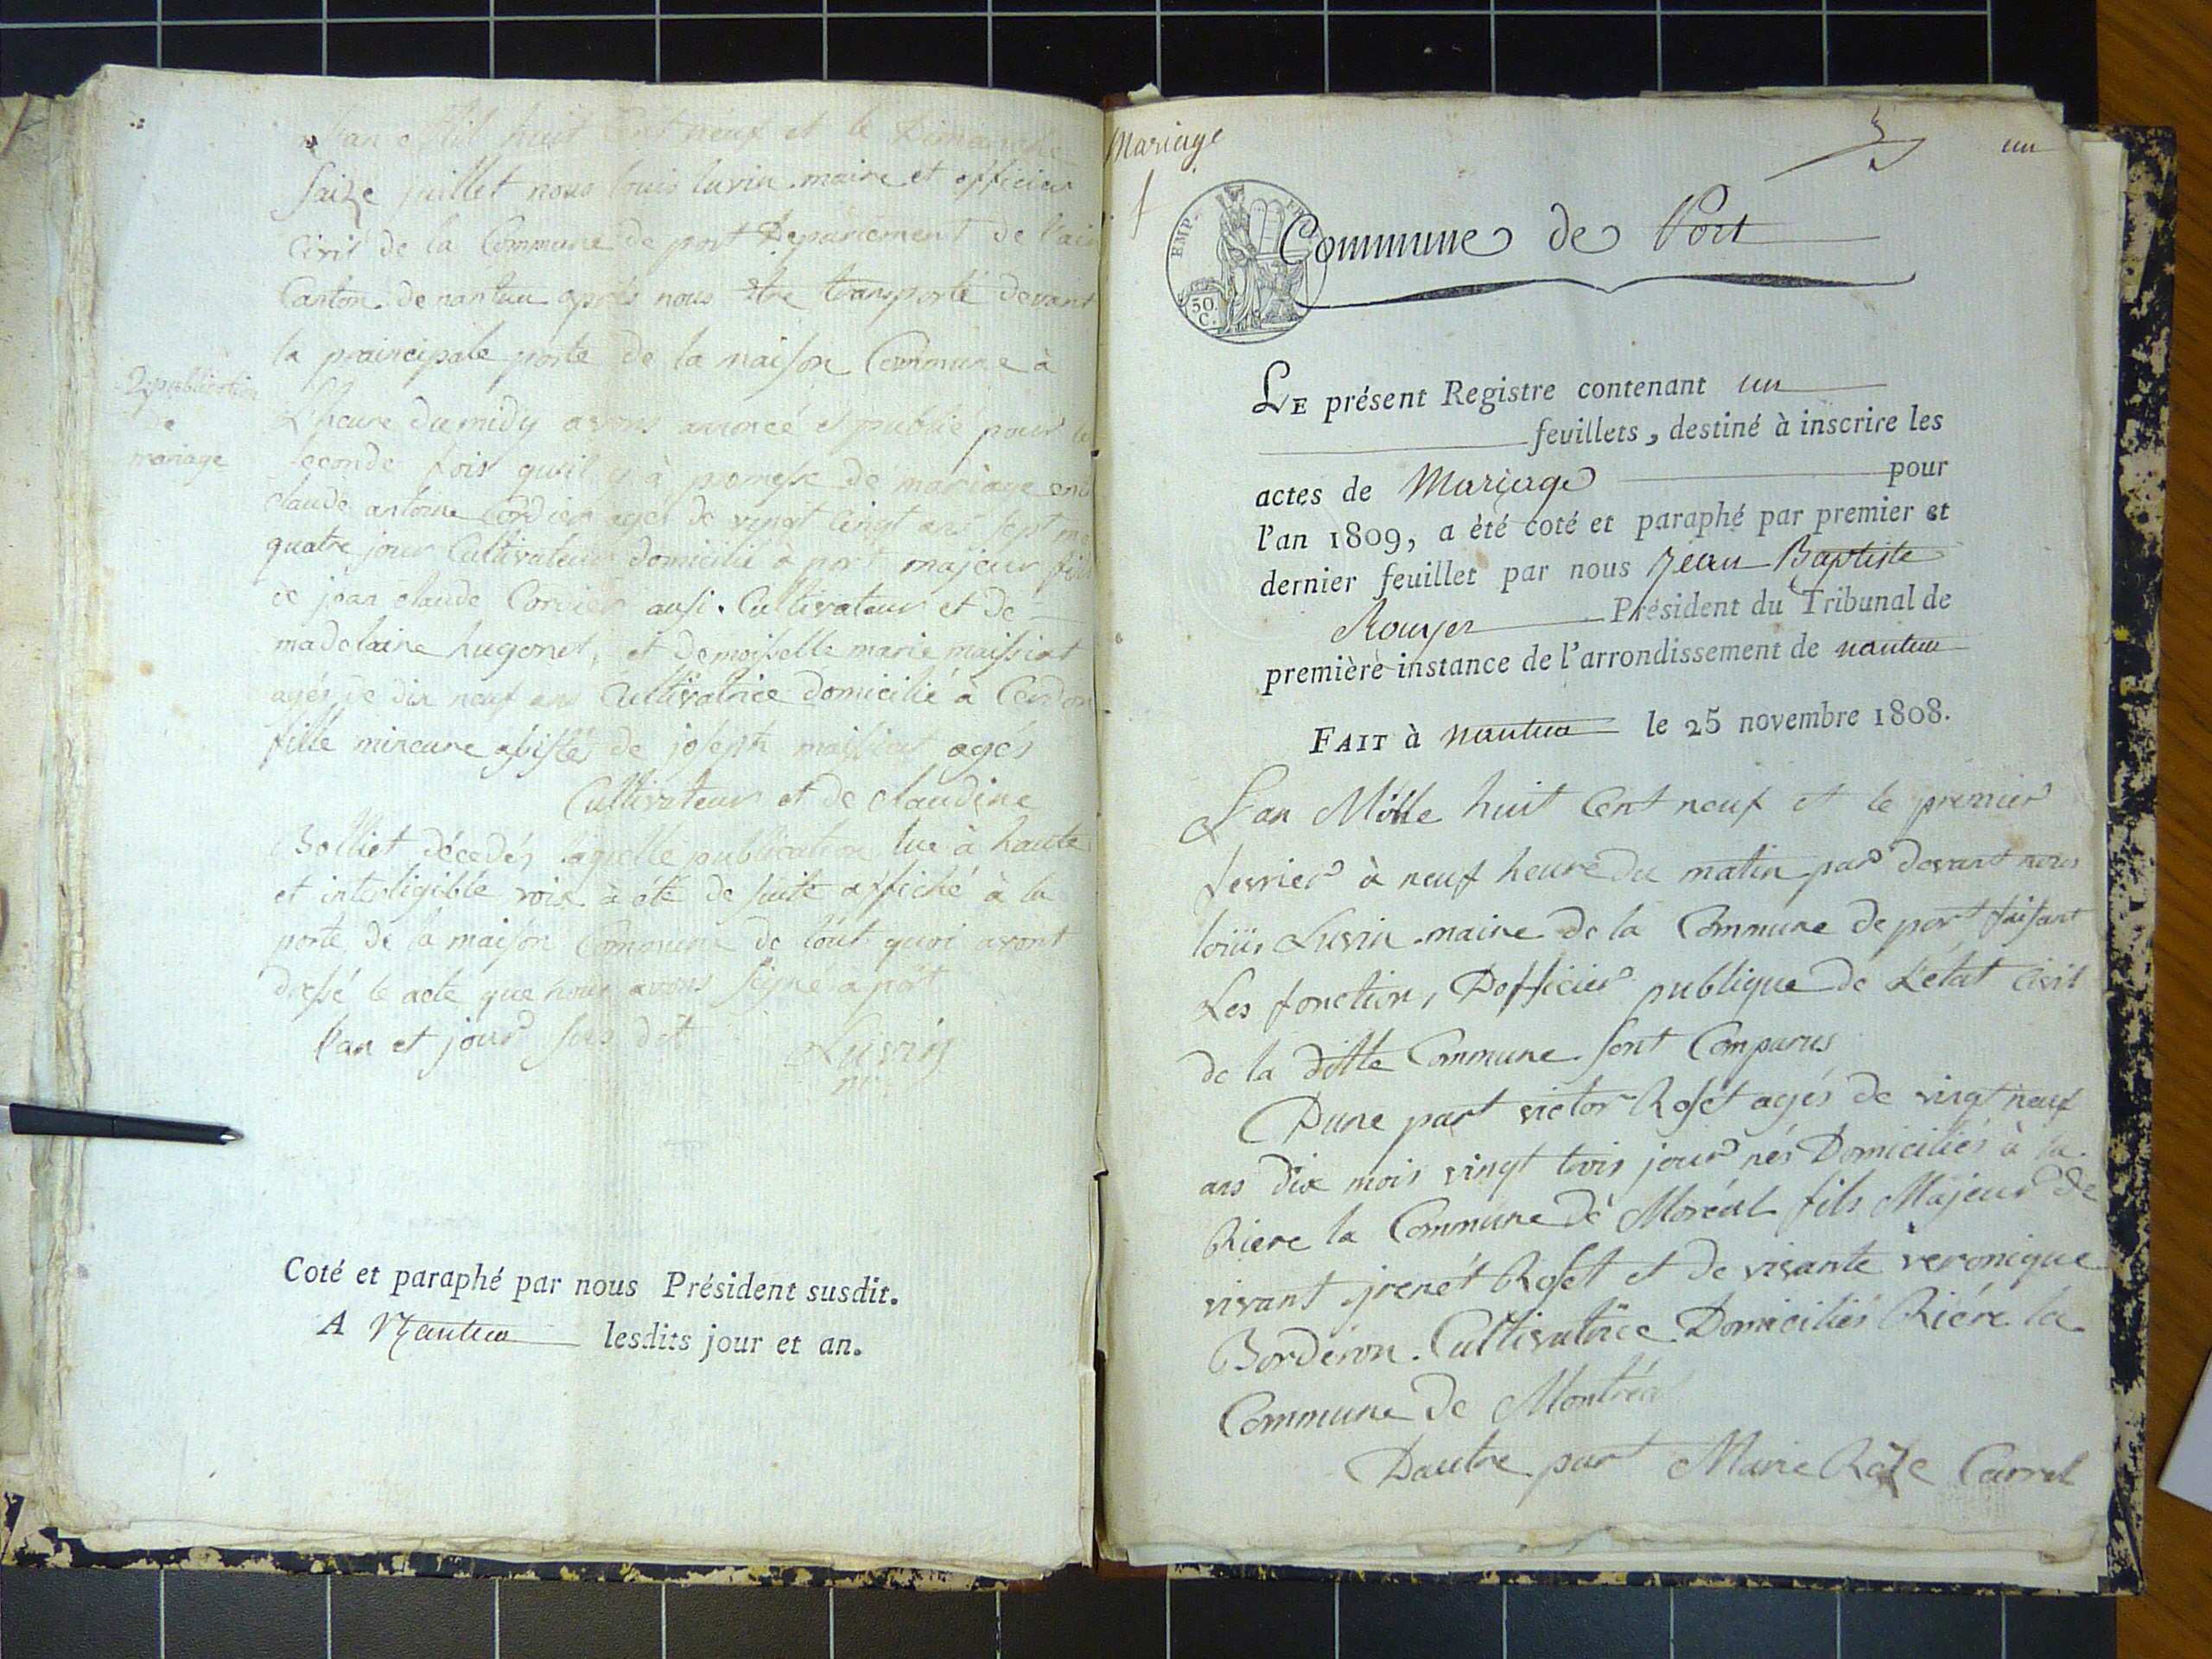 L'an Mil huit Cent neuf et le Dimanche
saize juillet nous louis luvin maire et officier
Civil de la Commune de port Departement de l'ain
Canton de nantua après nous être transporté devant
la praincipale porte de la maison Commune à
2.e publication
de
mariage
L'heure du midy avons anonce et publié pour la
seconde fois quil y à promesse de mariage entre
claude antoine Cordier agés de vingt Cinqt ans sept mois
quatre jour Cultivateur domicilié à port majeur fils
de jean claude Cordier ausi Cultivateur et de
madelaine hugonet, et demoisselle marie maissiat
agés de dix neuf ans Cultivatrice domicilié à Cerdon
fille mineure assisté de joseph maissiat agés
Cultivateur et de claudine
Bolliet décedés laquelle publication lue à haute
et intelligible voix à été de suite affiché à la
porte de la maison Commune de tout quoi avont
dressé le acte que nous avons signé a port
l'an et jour sus dit Luvin
m.
Coté et paraphé par nous Président susdit.
A Nantua lesdits jour et an.
Mariage
un
EMP. FRA.
50.
C.
Commune de Port
LE présent Registre contenant un
feuillets, destiné à inscrire les
actes de Mariage pour
l'an 1809, a èté coté et paraphé par premier et
dernier feuillet par nous Jean Baptiste
Rouyer Président du Tribunal de
première instance de l'arrondissement de nantua
FAIT à nantua le 25 novembre 1808.
L'an Mille huit Cent neuf et le premier
fevrier à neuf heure du matin par devant nous
loüis Luvin maire de la Commune de port faisant
Les fonction, Dofficier publique de L'état Civil
de la ditte Commune sont Comparus
Dune part victor Roset agés de vingt neuf
ans dix mois vingt trois jour nés Domiciliés à la
Riere la Commune de Moréal fils Majeur de
vivant jrenét Roset et de vivante veronique
Borderon Cultivatrice Domiciliés Riére la
Commune de Montréal
Dautre part Marie Roze Carrel